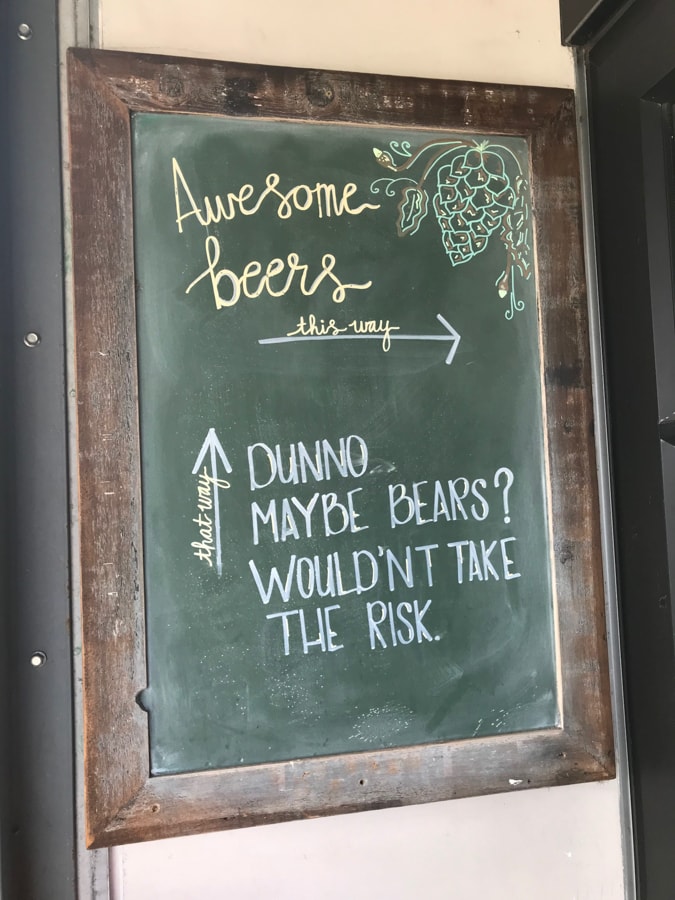 Awesome
beers
this way
that way
DUNNO
MAYBE BEARS?
WOULD'NT TAKE
THE RISK.